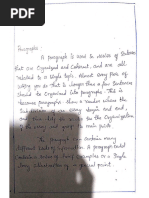 Paragraphs:
A paragraph is used to series of Sentence
that are Organized and Coherent, and are all
related to a Single topic. Almost every Piece of
writing you do that is longer than a few Sentences
Should be Organized into paragraphs. This is
because paragraphs show a reader where the
Subdivision of an essay begin and end,
and thus help the reader see the Organization
of the essay and grasp its main points.
The paragraph can contain many
different kinds of information. A paragraph could
Contain a series of brief examples or a Single
long illustration of a general point.